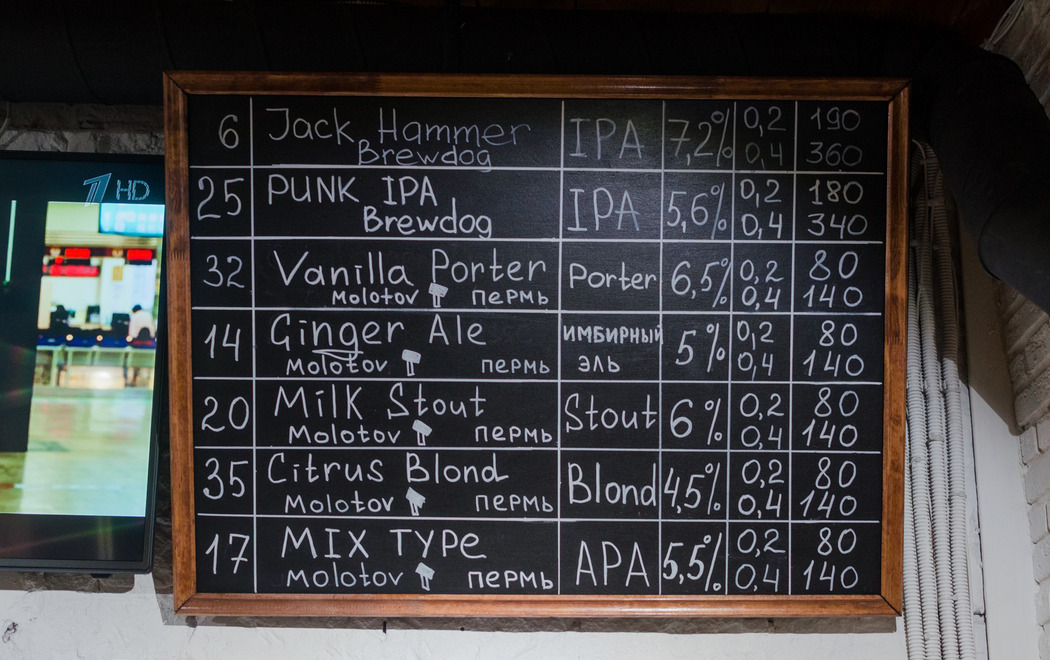 1 HD
6 Jack Hammer IPA 7,2% 0,2 190
Brewdog 0,4 360
25 PUNK IPA IPA 5,6% 0,2 180
Brewdog 0,4 340
32 Vanilla Porter Porter 6,5% 0,2 80
Molotov пермь 0,4 140
14 Ginger Ale имбирный 5% 0,2 80
Molotov пермь эль 0,4 140
20 Milk Stout Stout 6% 0,2 80
Molotov пермь 0,4 140
35 Citrus Blond Blond 4,5% 0,2 80
Molotov пермь 0,4 140
17 MIX TYPE APA 5,5% 0,2 80
Molotov пермь 0,4 140